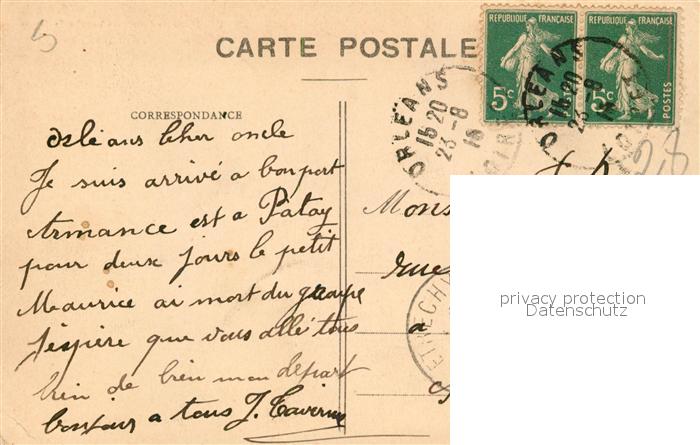 5
CARTE POSTALE
REPUBLIQUE FRANÇAISE REPUBLIQUE FRANÇAISE
5c 5c
POSTES
ORLEANS
15 20
23 - 8
ORLEANS
15 20
23 - 8
CORRESPONDANCE
Orléans Cher oncle
Je suis arrivé a bon port
Armance est a Patay
pour deux jours le petit
Maurice ai mort du groupe
J'espère que vous allé tous
bien de bien mon départ
bonjour a tous J. Taverne
Mons
rue
a
ETRECHY
privacy protection
Datenschutz